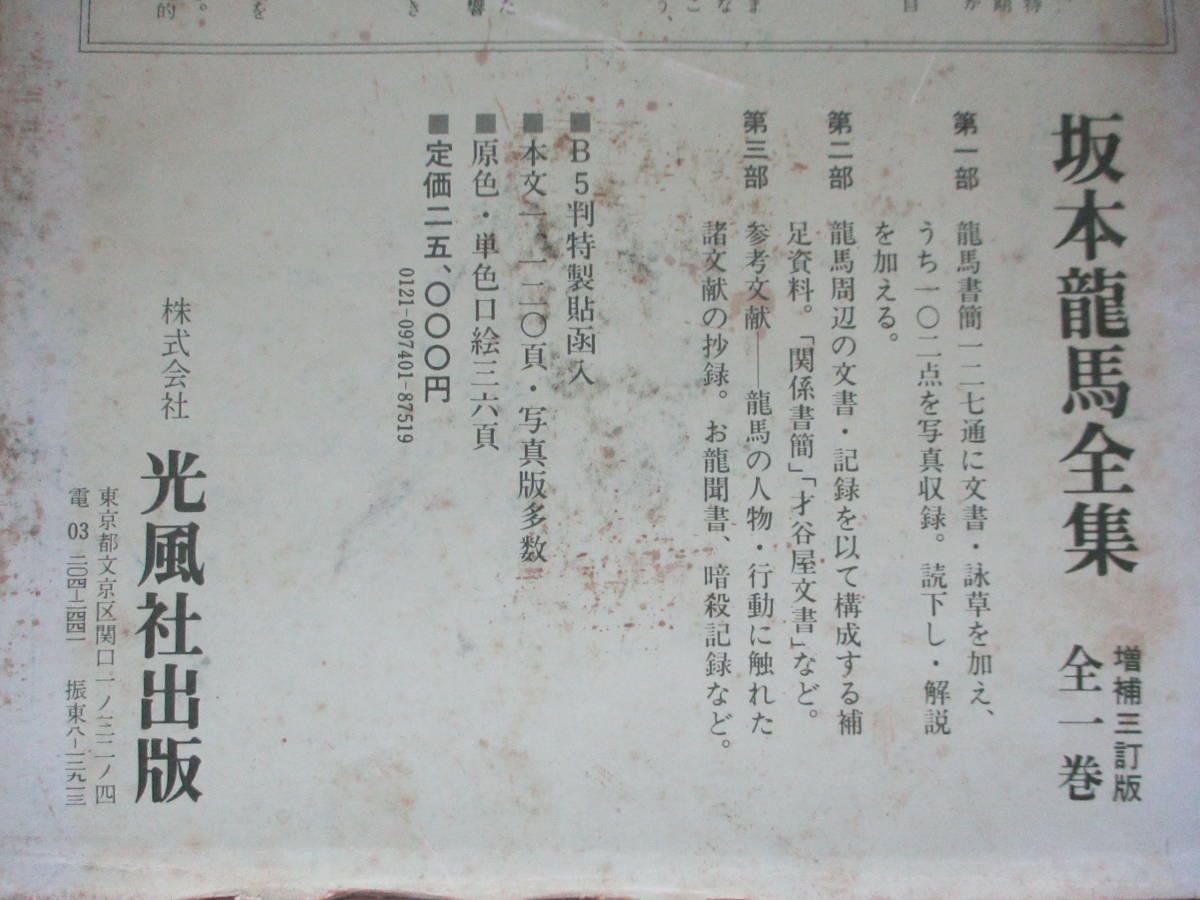 坂本龍馬全集
増補三訂版
全一巻
第一部 龍馬書簡一二七通に文書・詠草を加え、
うち一〇二点を写真収録。読下し・解説
を加える。
第二部 龍馬周辺の文書・記録を以て構成する補
足資料。「関係書簡」「才谷屋文書」など。
第三部 参考文献——龍馬の人物・行動に触れた
諸文献の抄録。お龍聞書、暗殺記録など。
■B5判特製貼函入
■本文一、一二〇頁・写真版多数
■原色・単色口絵三六頁
■定価二五、〇〇〇円
0121-097401-87519
株式会社 光風社出版
東京都文京区関口一ノ三二ノ四
電 03 二〇四-二四四一 振東八-一三九一三